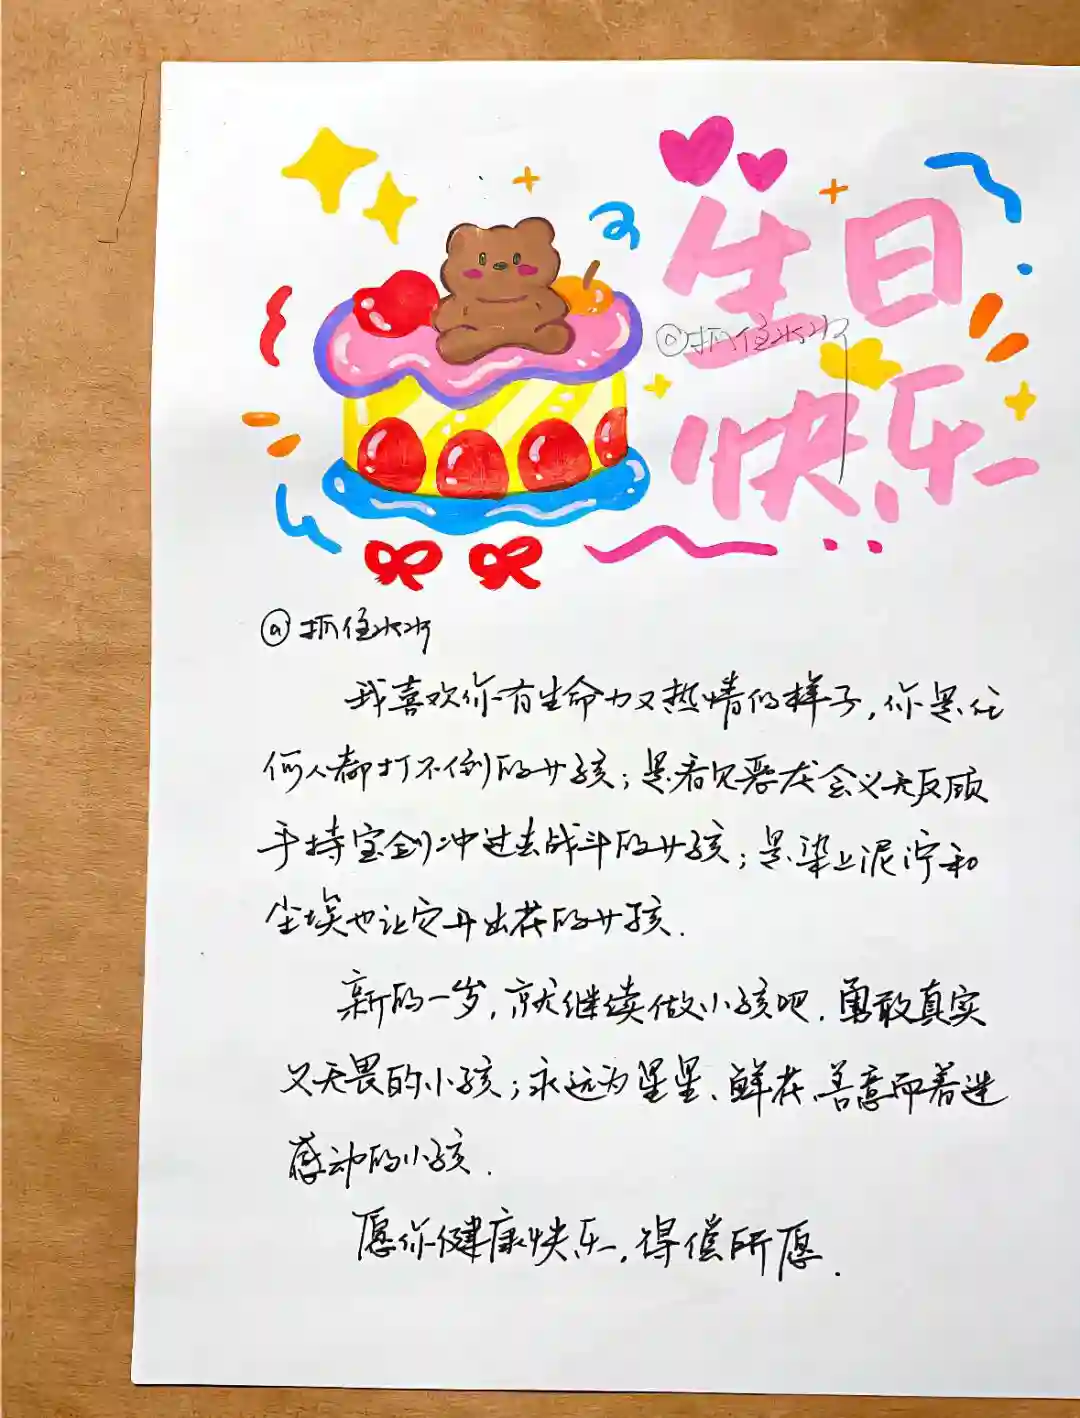 生日
@抓住水水
快乐
@抓住水水
我喜欢你有生命力又热情的样子，你是任
何人都打不倒的女孩；是看见恶龙会义无反顾
手持宝剑冲过去战斗的女孩；是染上泥泞和
尘埃也让它开出花的女孩.
新的一岁，就继续做小孩吧.勇敢真实
又无畏的小孩；永远为星星、鲜花、善意而着迷
感动的小孩.
愿你健康快乐，得偿所愿.